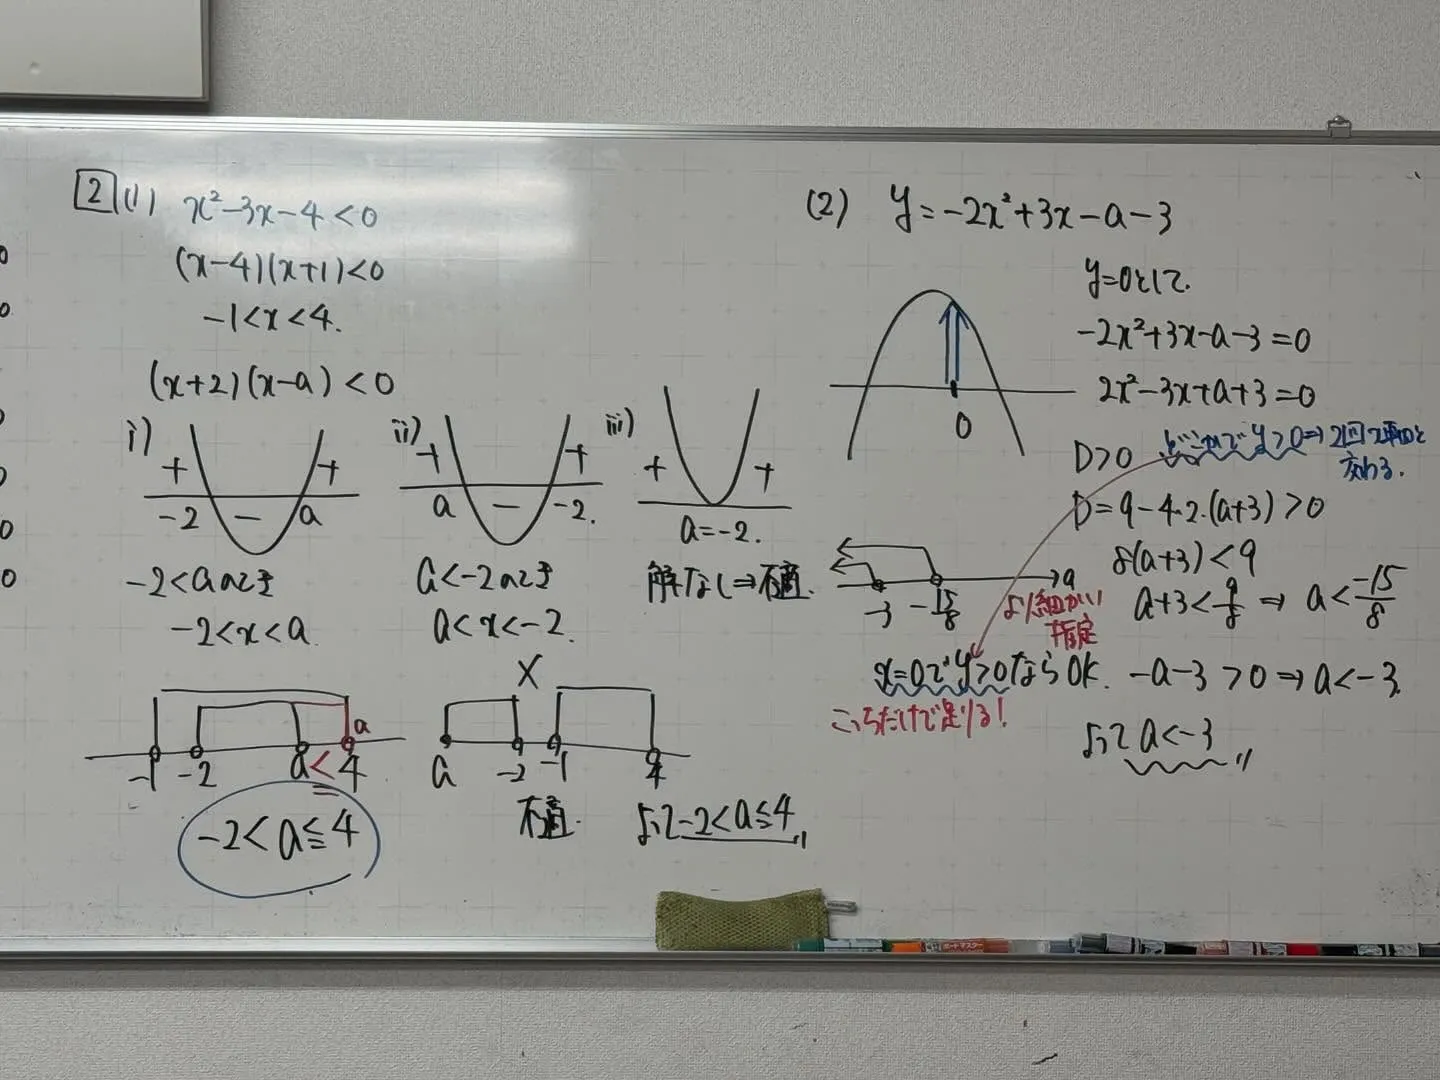 2 (1) x²-3x-4<0
(x-4)(x+1)<0
-1<x<4.
(x+2)(x-a)<0
i)
+ +
-2 - a
-2<aのとき
-2<x<a
-1 -2 a<4
a
-2<a≦4
ii)
+ +
a - -2.
a<-2のとき
a<x<-2.
×
a -2 -1 4
不適.
iii)
+ +
a=-2.
解なし⇒不適.
よって-2<a≦4
(2) y=-2x²+3x-a-3
0
y=0として.
-2x²+3x-a-3=0
2x²-3x+a+3=0
D>0 どこかでy>0⇒2回x軸と
交わる.
D=9-4・2・(a+3)>0
8(a+3)<9
a+3<9/8 ⇒ a<-15/8
-3 -15/8 a
より細かい
指定
x=0でy>0ならOK. -a-3>0⇒a<-3.
こっちだけで足りる!
よってa<-3
0
0
0
0
0
ボードマスター